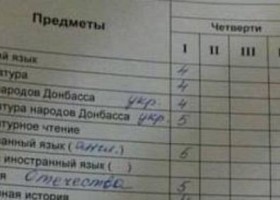 Предметы
Четверти
I II III
ый язык 4
атура 4
народов Донбасса укр. 4
атура народов Донбасса укр. 5
атурное чтение
анный язык (англ.) 5
иностранный язык ( )
я Отечества 5
ная история